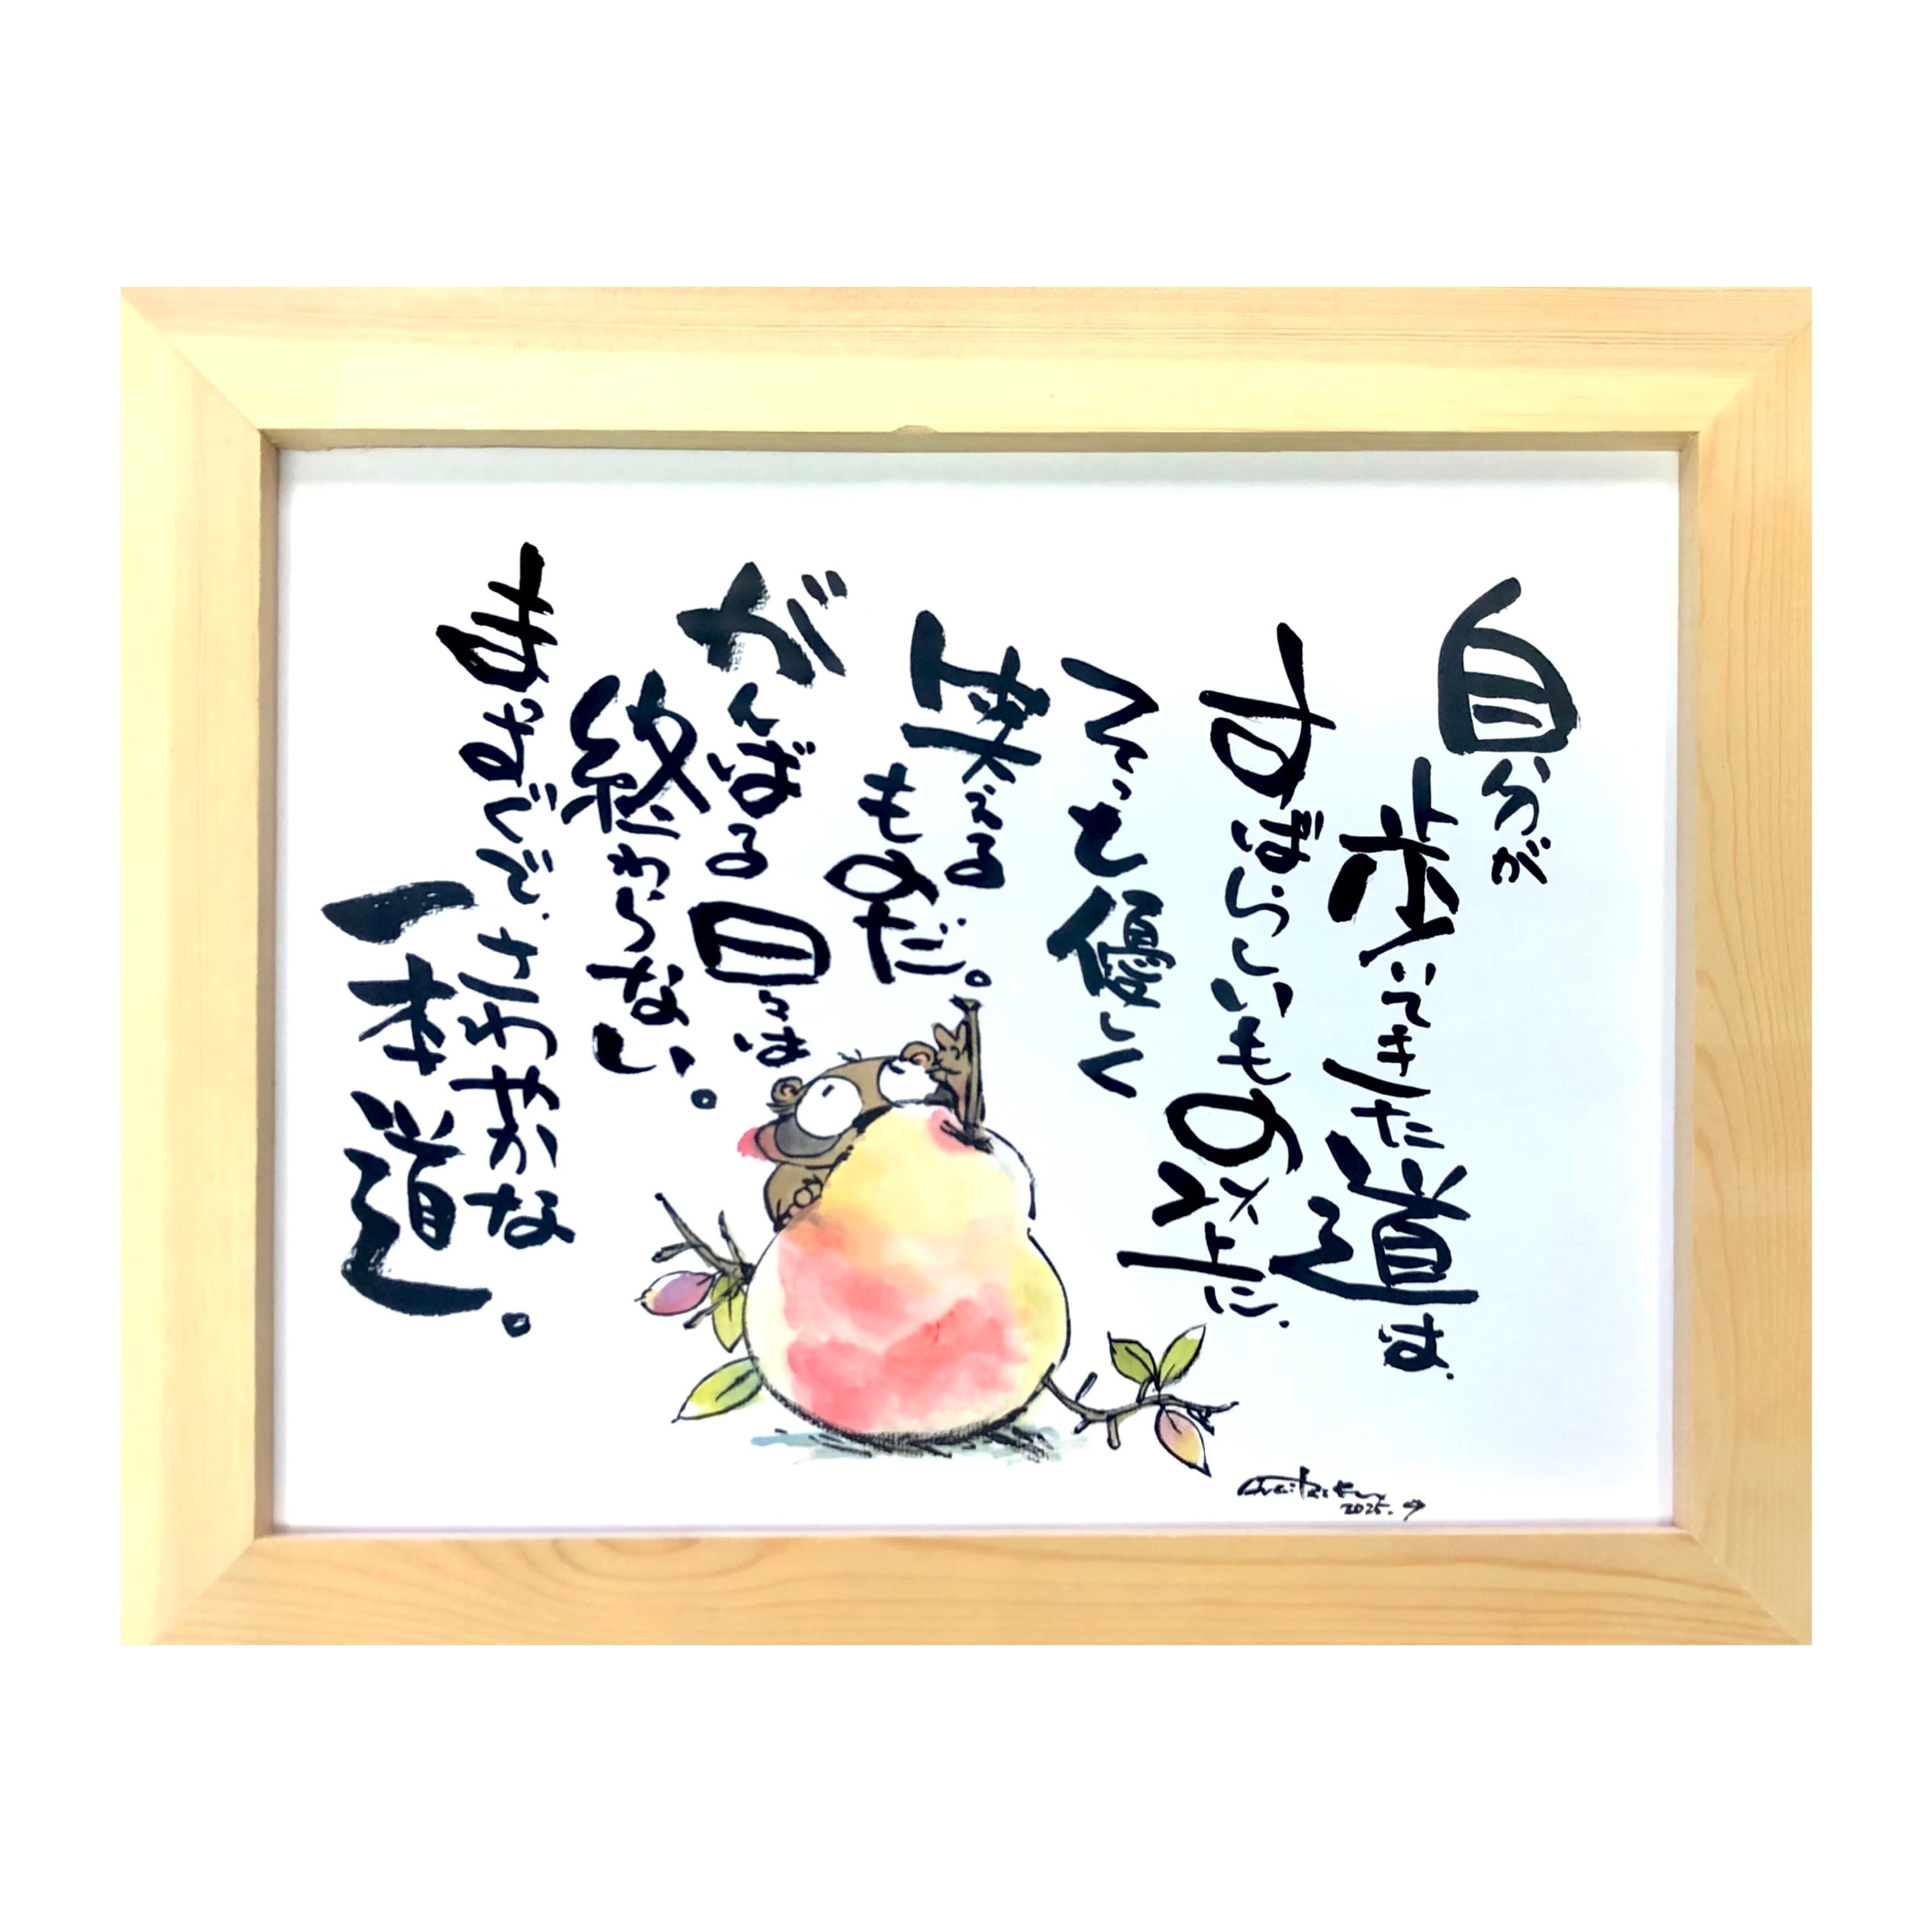 自分が
歩いてきた道は、
すばらしいもの以上に、
そっと優しく
笑える
ものだ。
がんばる日々は
終わらない。
まっすぐで、さわやかな
一本道。
2025.9